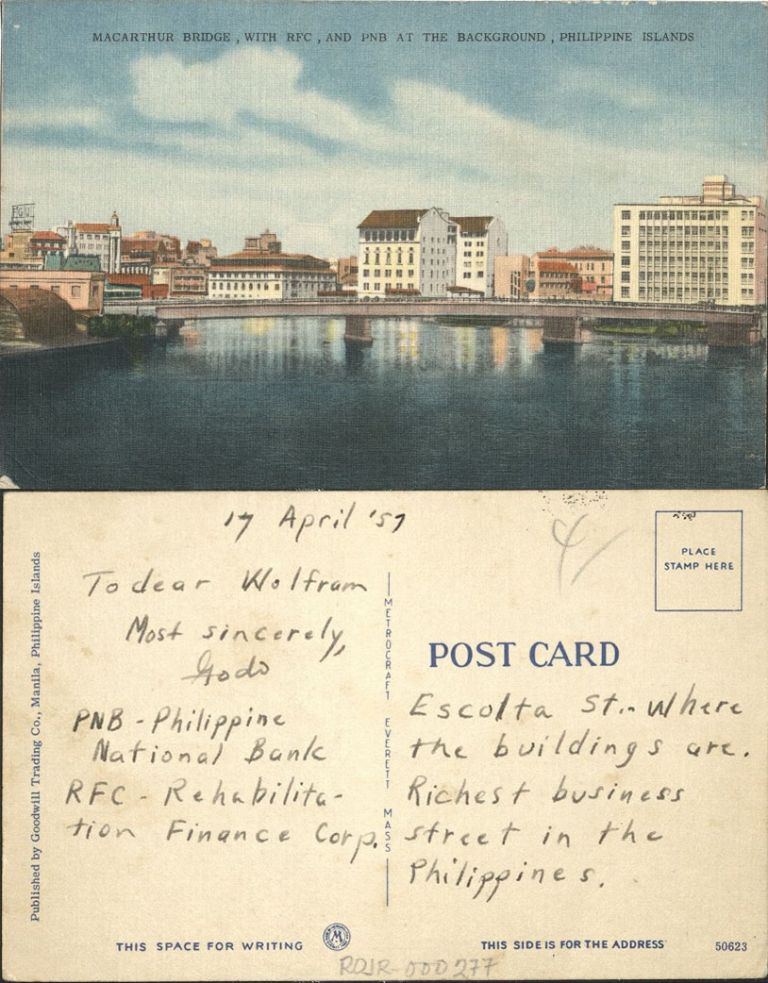 MACARTHUR BRIDGE , WITH RFC , AND PNB AT THE BACKGROUND , PHILIPPINE ISLANDS
17 April '57
To dear Wolfram
Most sincerely,
Godo
PNB - Philippine
National Bank
RFC - Rehabilita-
tion Finance Corp.
Published by Goodwill Trading Co., Manila, Philippine Islands
METROCRAFT EVERETT MASS
4/
PLACE
STAMP HERE
POST CARD
Escolta St.. Where
the buildings are.
Richest business
street in the
Philippines.
THIS SPACE FOR WRITING
M
THIS SIDE IS FOR THE ADDRESS
50623
ROJR-000277